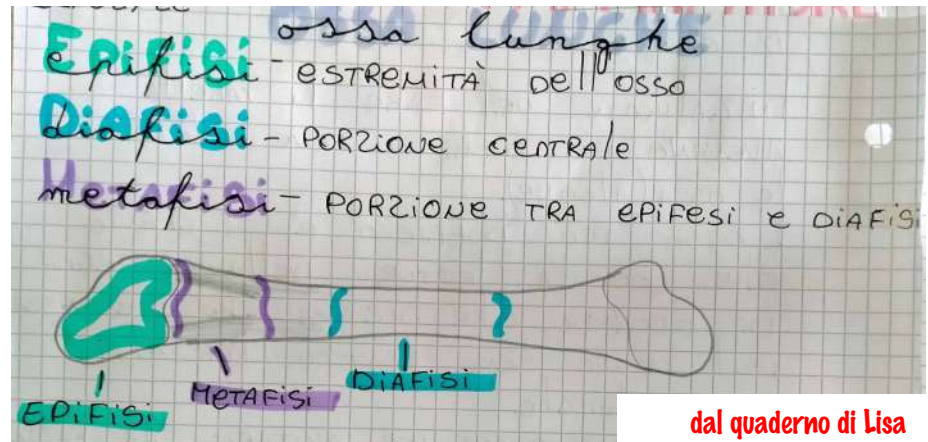 ossa lunghe
epifisi - ESTREMITÀ Dell'OSSO
Diafisi - PORZIONE CENTRAle
metafisi - PORZIONE TRA ePiFesi e DiAFiSi
EPiFiSi
MeTAFiSi
DiAFiSi
dal quaderno di Lisa